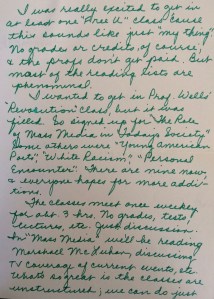 I was really excited to get in
at least one "Free U" class cause
this sounds like just my "thing".
No grades or credits, of course,
& the profs don't get paid. But
most of the reading lists are
phenomenal.
I wanted to get in Prof. Wells'
"Revolution" class, but it was
filled. So signed up for "The Role
of Mass Media in Today's Society."
Some others were "Young American
Poets", "White Racism", "Personal
Encounter". There are nine now,
& everyone hopes for more addi-
tions.
The classes meet once weekly
for abt. 3 hrs. No grades, tests,
lectures, etc. Just discussion.
In "Mass Media" we'll be reading
Marshall McLuhan, discussing
TV coverage of current events, etc.
What's so great is the classes are
unstructured; we can do just